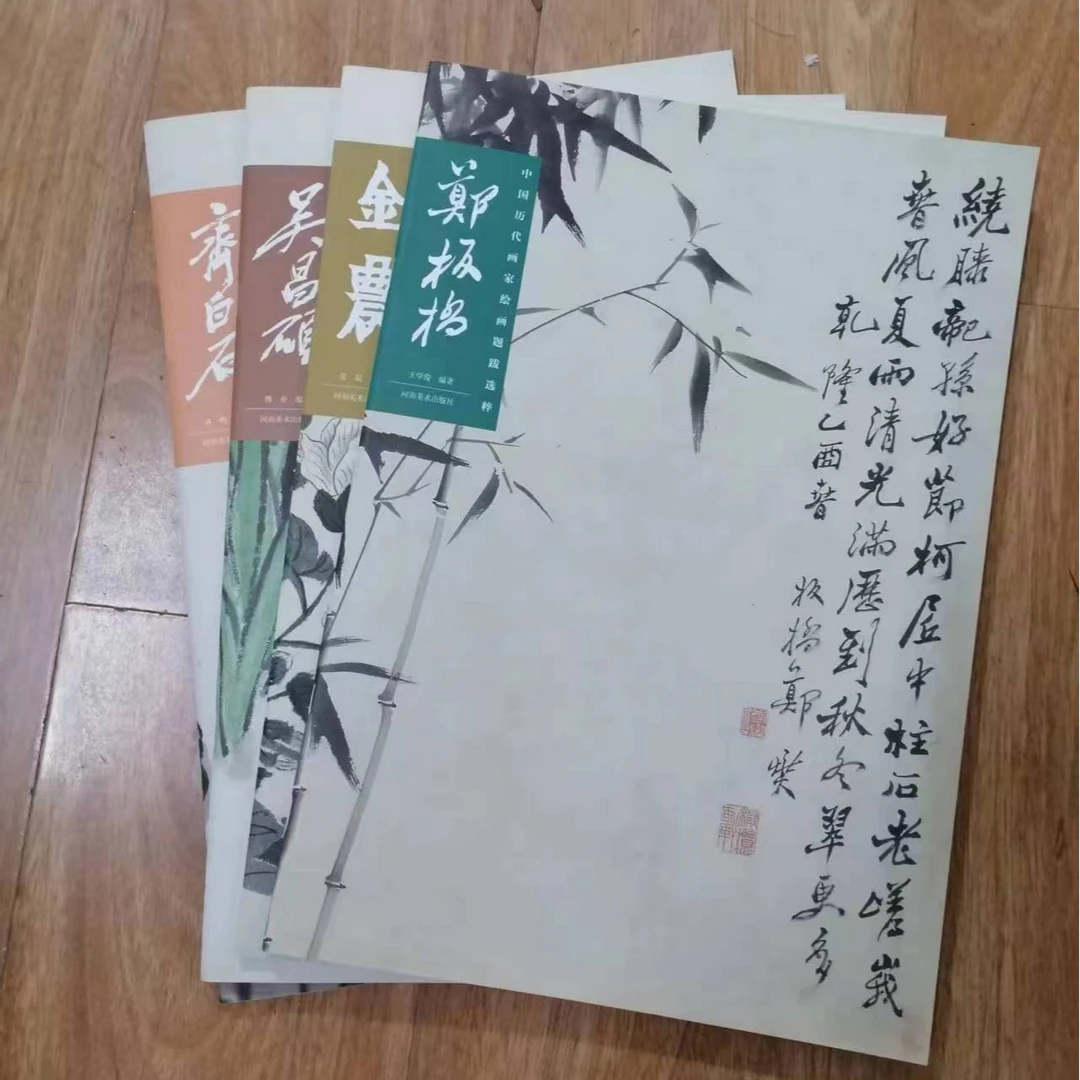 齊白石
吴昌碩
河南美术出
金農
河南美
鄭板橋
中国历代画家绘画题跋选粹
王学俊 编著
河南美术出版社
繞膝龍孫好節柯居中柱石老嵯峩
春風夏雨清光滿歷到秋冬翠更多
乾隆乙酉春
板橋鄭燮